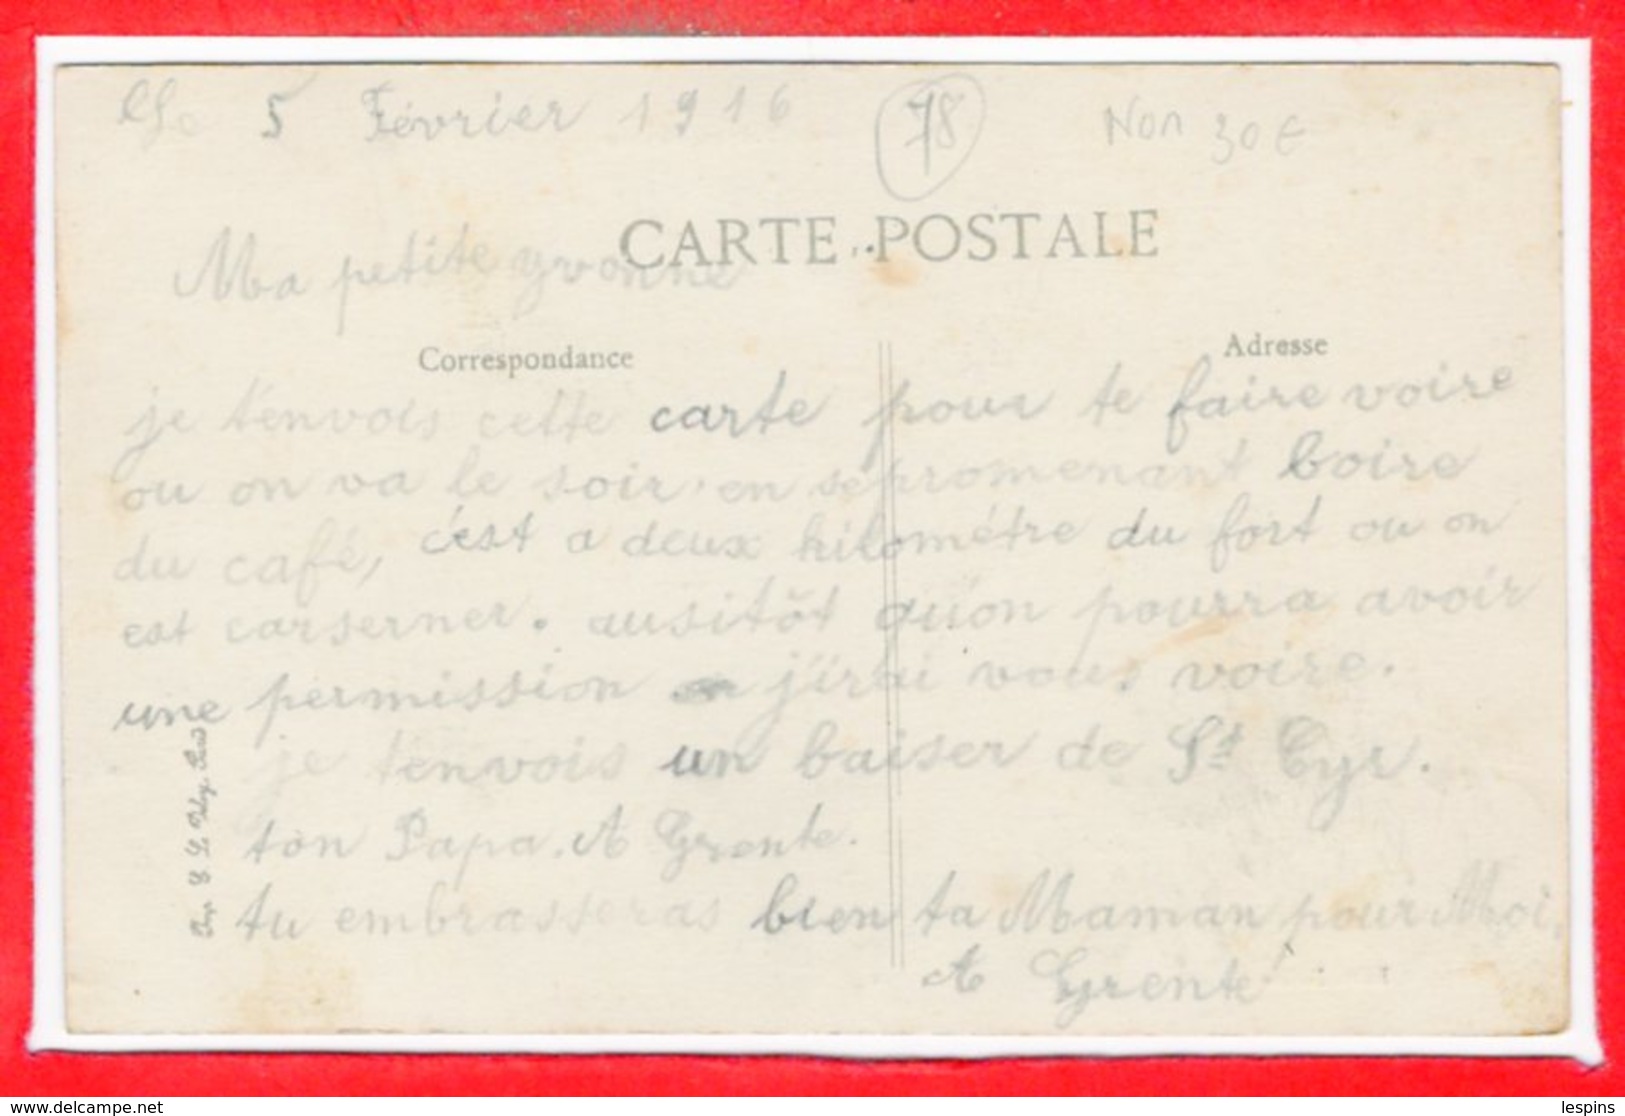 Le 5 Février 1916
78
Non 30€
CARTE POSTALE
Ma petite yvonne
Correspondance
Adresse
je t'envois cette carte pour te faire voire
ou on va le soir, en se promenant boire
du café, c'est a deux kilométre du fort ou on
est carserner. ausitôt qu'on pourra avoir
une permission j'irai vous voire.
je t'envois un baiser de St Cyr.
ton Papa. A Grente.
tu embrasseras bien ta Maman pour Moi.
A Grente
lespins